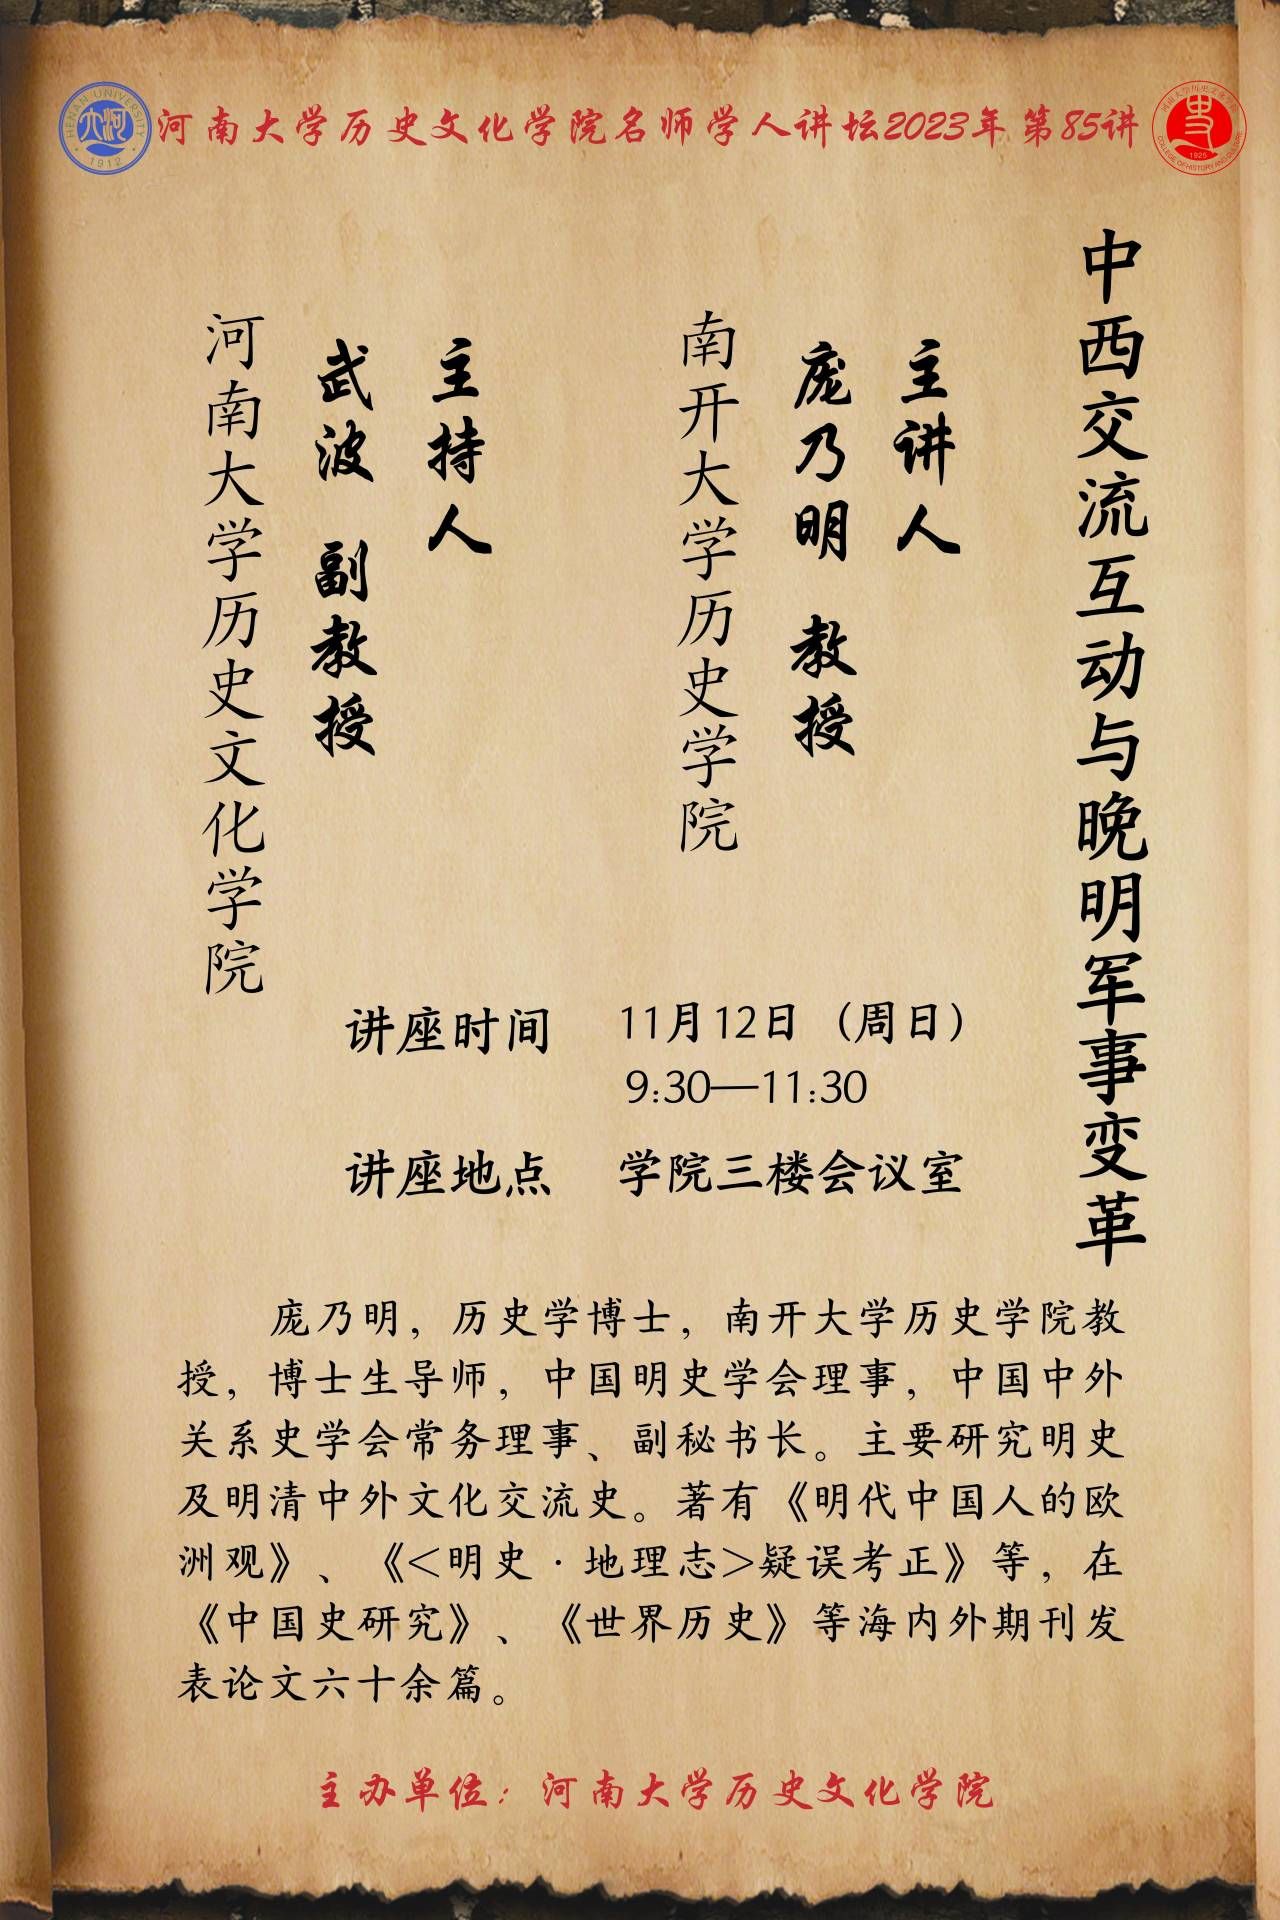 河南大学历史文化学院名师学人讲坛2023年第85讲
HENAN UNIVERSITY
1912
河南大学历史文化学院
1925
COLLEGE OF HISTORY AND CULTURE
中西交流互动与晚明军事变革
主讲人
庞乃明 教授
南开大学历史学院
主持人
武波 副教授
河南大学历史文化学院
讲座时间 11月12日（周日）
9:30—11:30
讲座地点 学院三楼会议室
庞乃明，历史学博士，南开大学历史学院教
授，博士生导师，中国明史学会理事，中国中外
关系史学会常务理事、副秘书长。主要研究明史
及明清中外文化交流史。著有《明代中国人的欧
洲观》、《<明史·地理志>疑误考正》等，在
《中国史研究》、《世界历史》等海内外期刊发
表论文六十余篇。
主办单位：河南大学历史文化学院